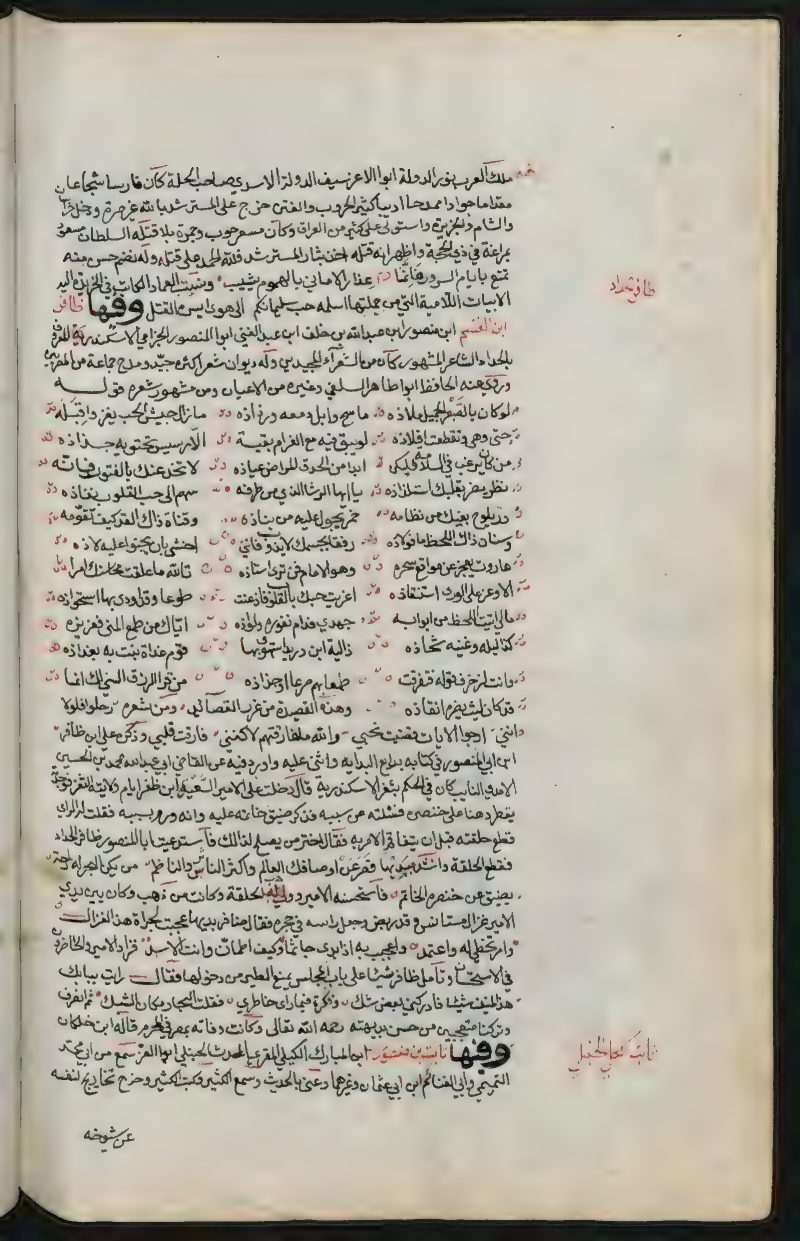 ملك العرب نور الدولة ابوا الاعز سيف الدولة الاسدي صاحب الحلة كان فارسا شجاعا
مقداما جوادا ممدحا اديبا كثير الحروب والفتن خرج على المسترشد بالله غير مرة ودخل
والشام والجزيرة واستولى على كثير من العراق وكان مسعر حروب وجمرة بلا قتله السلطان مسعود
بمراغة في ذي الحجة واظهر انه قتله اخذ بثار المسترشد فلله الحمد على قتله وله نظم حسن منه
تمتع بايام السرور فانما عذار الاماني بالهموم يشيب وينسب العماد الكاتب في الخريدة اليه
الابيات اللامية التي من جملتها اسلمه حب سليمانكم الى هوى ايسره القتل وفيها ظافر
ابن القسم ابن منصور ابن عبد الله بن خلف ابن عبد الغني ابوا المنصور الجزامي الاسكندرية المعروف
بالحداد الشاعر المشهور كان من الشعرآء المجيدين وله ديوان شعر اكثره جيد ومدح جماعة من المصريين
وروى عنه الحافظ ابوا طاهر السلفي وغيره من الاعيان ومن مشهور شعره قوله
لو كان بالصبر الجميل ملاذه ما سح وابل دمعه ورذاذه ما زال جيش الحب يغزو قلبه
حتى وهى وتقطعت افلاذه لم يبق فيه مع الغرام بقية الا رسيس تحتويه جذاذه
من كان يرغب في السلامة فليكن ابدا من الحدق المراض عياذه لا تخدعنك بالفتور فانه
نظر يضر بقلبك استلذاذه يا ايها الرشا الذي من طرفه سهم الى حب القلوب نفاذه
در يلوح بفيك من نظامه خمر يجول عليه من نباذه وقناة ذاك القد كيف تقومه
وسنان ذاك اللحظ ما فولاذه رفقا بجسمك لا يذوب فاني اخشى بان يجفوا عليه لاذه
هاروت يعجز عن مواقع سحره وهو الامام فمن ترى استاذه تالله ما علقت محاسنك امرا
الا وعز على الورى استنقاذه اغريت حبك بالقلوب فاذعنت طوعا وقد اودى بها استحواذه
مالي اتيت اللحظ من ابوابه جهدي فدام نفوره ولواذه اياك من طمع المنى فعزيزه
كذليله وغنيه شحاذه ذالية ابن دريد استهوى بها قوم غداة نبت به بغداذه
وانت لزخرف قوله فتفرقت طمعا بهم صرعا او جذاذه من قدر الرزق السني لك انما
قد كان ليس يضره انقاذه وهذه القصيدة من غرر القصآئد ومن شعره رحلوا فلولا
انني ارجوا الاياب قضيت نحبي والله ما فارقتهم لاكنني فارقت قلبي وذكره علي ابن ظافر
ابن ابي المنصور في كتابه بدايع البدايه واثنى عليه واورد فيه عن القاضي ابي عبد الله محمد بن الحسين
الامدي النايب كان في الحكم بثغر الاسكندرية قال دخلت على الامير السعيد ابن ظفر ايام ولايته الثغر فوجدته
يقطر دهنا على خنصره فسئلته عن سببه فذكر ضيق خاتمه عليه وانه ورم بسببه فقلت له الراي
قطع حلقته قبل ان يتفاقم الامر به فقال اختر من يصلح لذالك فاستدعيت ابا المنصور ظافر الحداد
فقطع الحلقة وانشد بديها قصر عن اوصافك العالم واكثر الناثر والناظم من يكن البحر له راحة
يضيق عن خنصره الخاتم فاستحسنه الامير ووهب له الحلقة وكانت من ذهب وكان بين يدي
الامير غزال مستانس وقد ربض وجعل راسه في حجره فقال ظافر بديها عجبت لجراة هذا الغزال
وامر تخطى له واعتمد واعجب به اذ ابدى جاثما وكيف اطمان وانت الاسد فزاد الامير والحاضرون
في الاستحسان وتامل ظافر شيئا على باب المجلس يمنع الطير من دخولها فقال رايت ببابك
هذا المنيف شبكا فادركني بعض شك وفكرة فيما راى خاطري فقلت البحار مكان الشبك ثم انصرف
وتركنا متعجبين من حسن بديهته رحمه الله تعالى وكانت وفاته بمصر في المحرم قاله ابن خلكان
وفيها ثابت بن منصور ابن المبارك الكيلي المقرء المحدث الحنبلي ابوا العز سمع من ابي محمد
التميمي وابي الغنائم ابن ابي عثمان وغيرهما وعنى بالحديث وسمع الكثير وكتب الكثير وخرج تخاريج لنفسه
عن شيوخه
ظافر حداد
ثابت كيلي الحنبلي